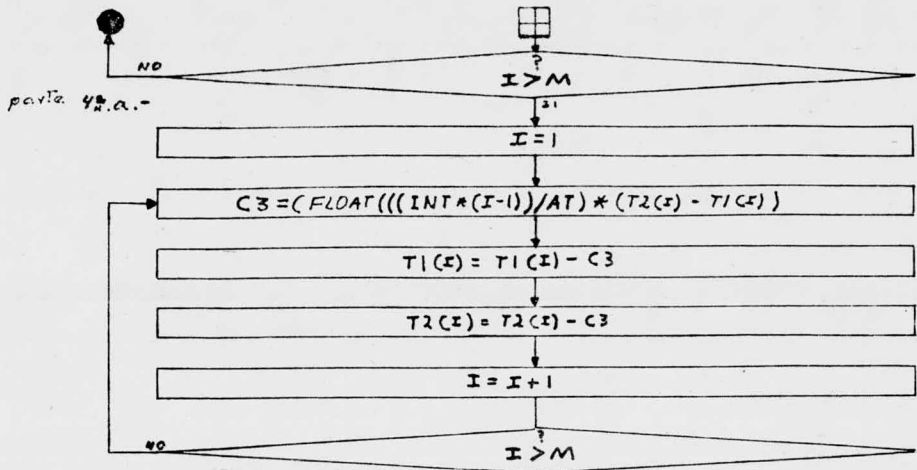 NO
?
I > M
SI
parte 4ª.a.-
I = 1
C3 = (FLOAT(((INT*(I-1))/AT)*(T2(I) - T1(I))
T1(I) = T1(I) - C3
T2(I) = T2(I) - C3
I = I + 1
NO
?
I > M